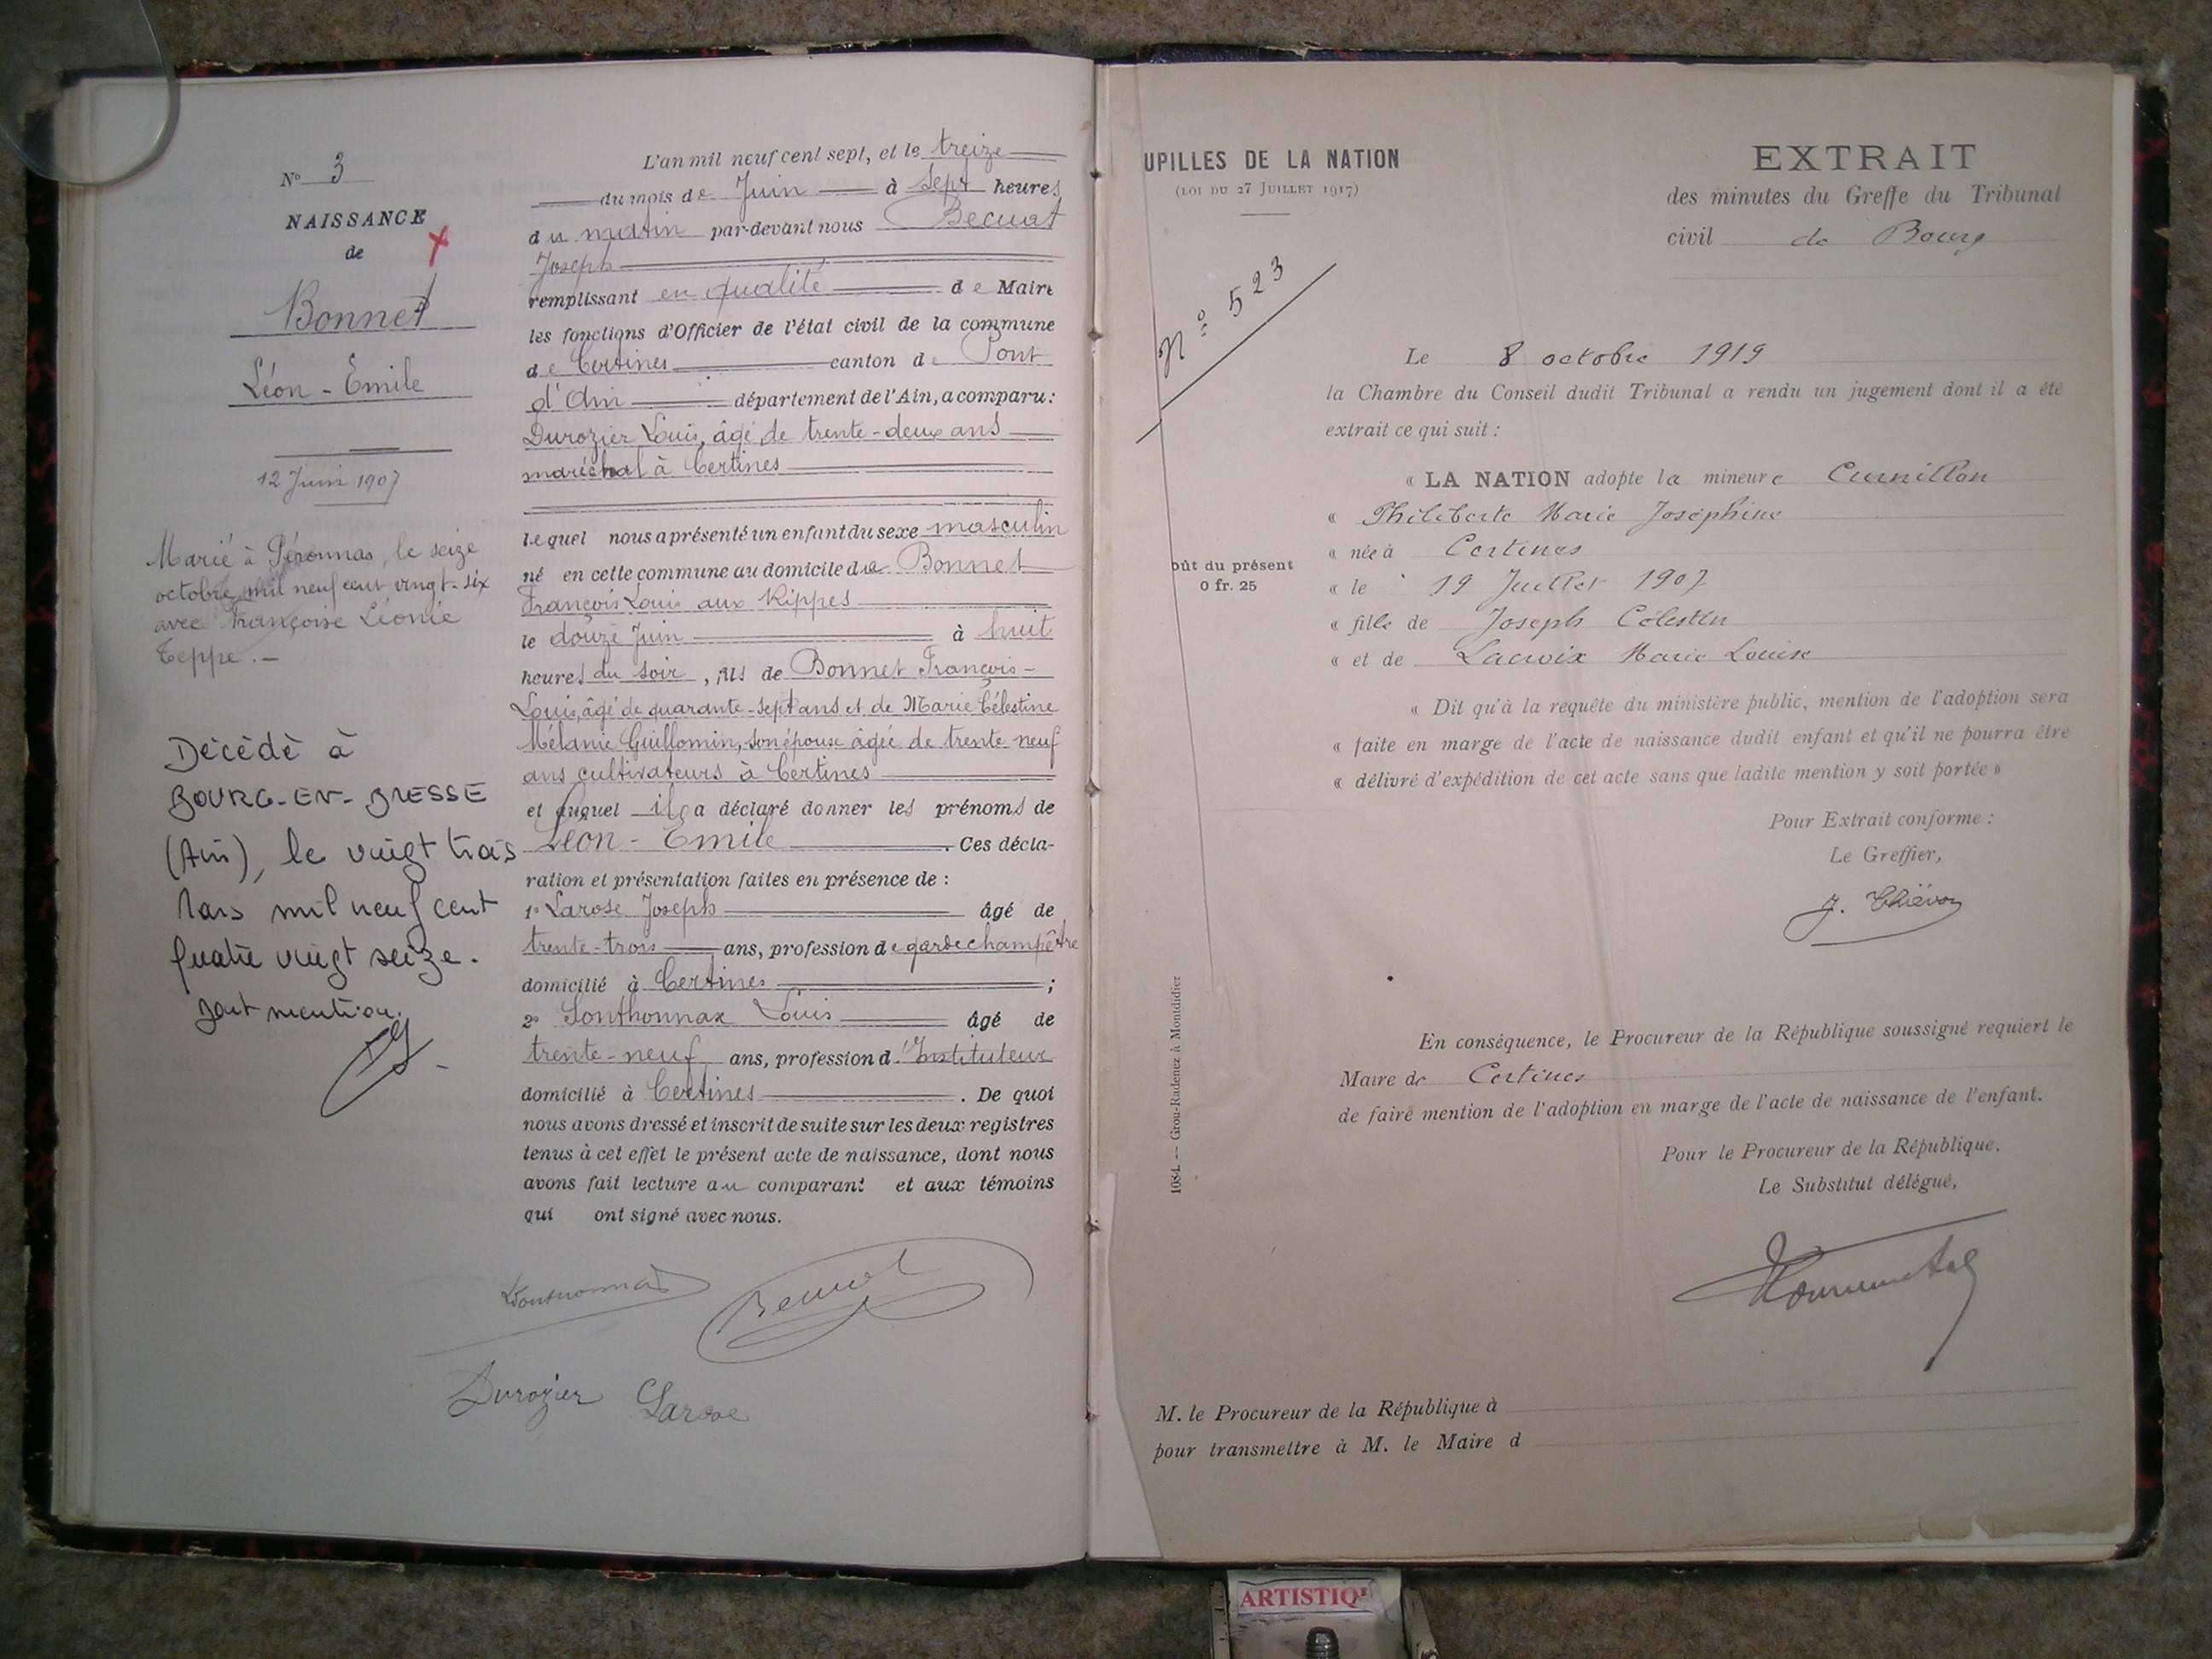 N° 3
NAISSANCE
de
Bonnet
Léon - Émile
12 Juin 1907
Marié à Péronnas, le seize
octobre mil neuf cent vingt-six
avec Françoise Léonie
Teppe. -
Décédé à
BOURG-EN-BRESSE
(Ain), le vingt trois
Mars mil neuf cent
quatre vingt seize.
dont mention.
L'an mil neuf cent sept, et le treize
du mois de Juin à sept heures
du matin par-devant nous Becuat
Joseph
remplissant en qualité de Maire
les fonctions d'Officier de l'état civil de la commune
de Certines canton de Pont
d'Ain département de l'Ain, a comparu :
Durozier Louis, âgé de trente-deux ans
maréchal à Certines
lequel nous a présenté un enfant du sexe masculin
né en cette commune au domicile de Bonnet
François Louis aux Rippes
le douze Juin à huit
heures du soir, fils de Bonnet François-
Louis, âgé de quarante-sept ans et de Marie Célestine
Mélanie Guillomin, son épouse âgée de trente-neuf
ans cultivateurs à Certines
et auquel il a déclaré donner les prénoms de
Léon - Émile . Ces décla-
ration et présentation faites en présence de :
1° Larose Joseph âgé de
trente-trois ans, profession de garde champêtre
domicilié à Certines ;
2° Sonthonnax Louis âgé de
trente-neuf ans, profession d'Instituteur
domicilié à Certines . De quoi
nous avons dressé et inscrit de suite sur les deux registres
tenus à cet effet le présent acte de naissance, dont nous
avons fait lecture au comparant et aux témoins
qui ont signé avec nous.
Sonthonnax Becuat
Durozier Larose
UPILLES DE LA NATION
(LOI DU 27 JUILLET 1917)
N° 523
oût du présent
0 fr. 25
1084. — Grou-Radenez à Montdidier
EXTRAIT
des minutes du Greffe du Tribunal
civil de Bourg
Le 8 octobre 1919
la Chambre du Conseil dudit Tribunal a rendu un jugement dont il a été
extrait ce qui suit :
« LA NATION adopte la mineure Curnillon
« Philiberte Marie Joséphine
« née à Certines
« le 19 Juillet 1907
« fille de Joseph Célestin
« et de Lacroix Marie Louise
« Dit qu'à la requête du ministère public, mention de l'adoption sera
« faite en marge de l'acte de naissance dudit enfant et qu'il ne pourra être
« délivré d'expédition de cet acte sans que ladite mention y soit portée »
Pour Extrait conforme :
Le Greffier,
En conséquence, le Procureur de la République soussigné requiert le
Maire de Certines
de faire mention de l'adoption en marge de l'acte de naissance de l'enfant.
Pour le Procureur de la République.
Le Substitut délégué,
M. le Procureur de la République à
pour transmettre à M. le Maire d
ARTISTIQ